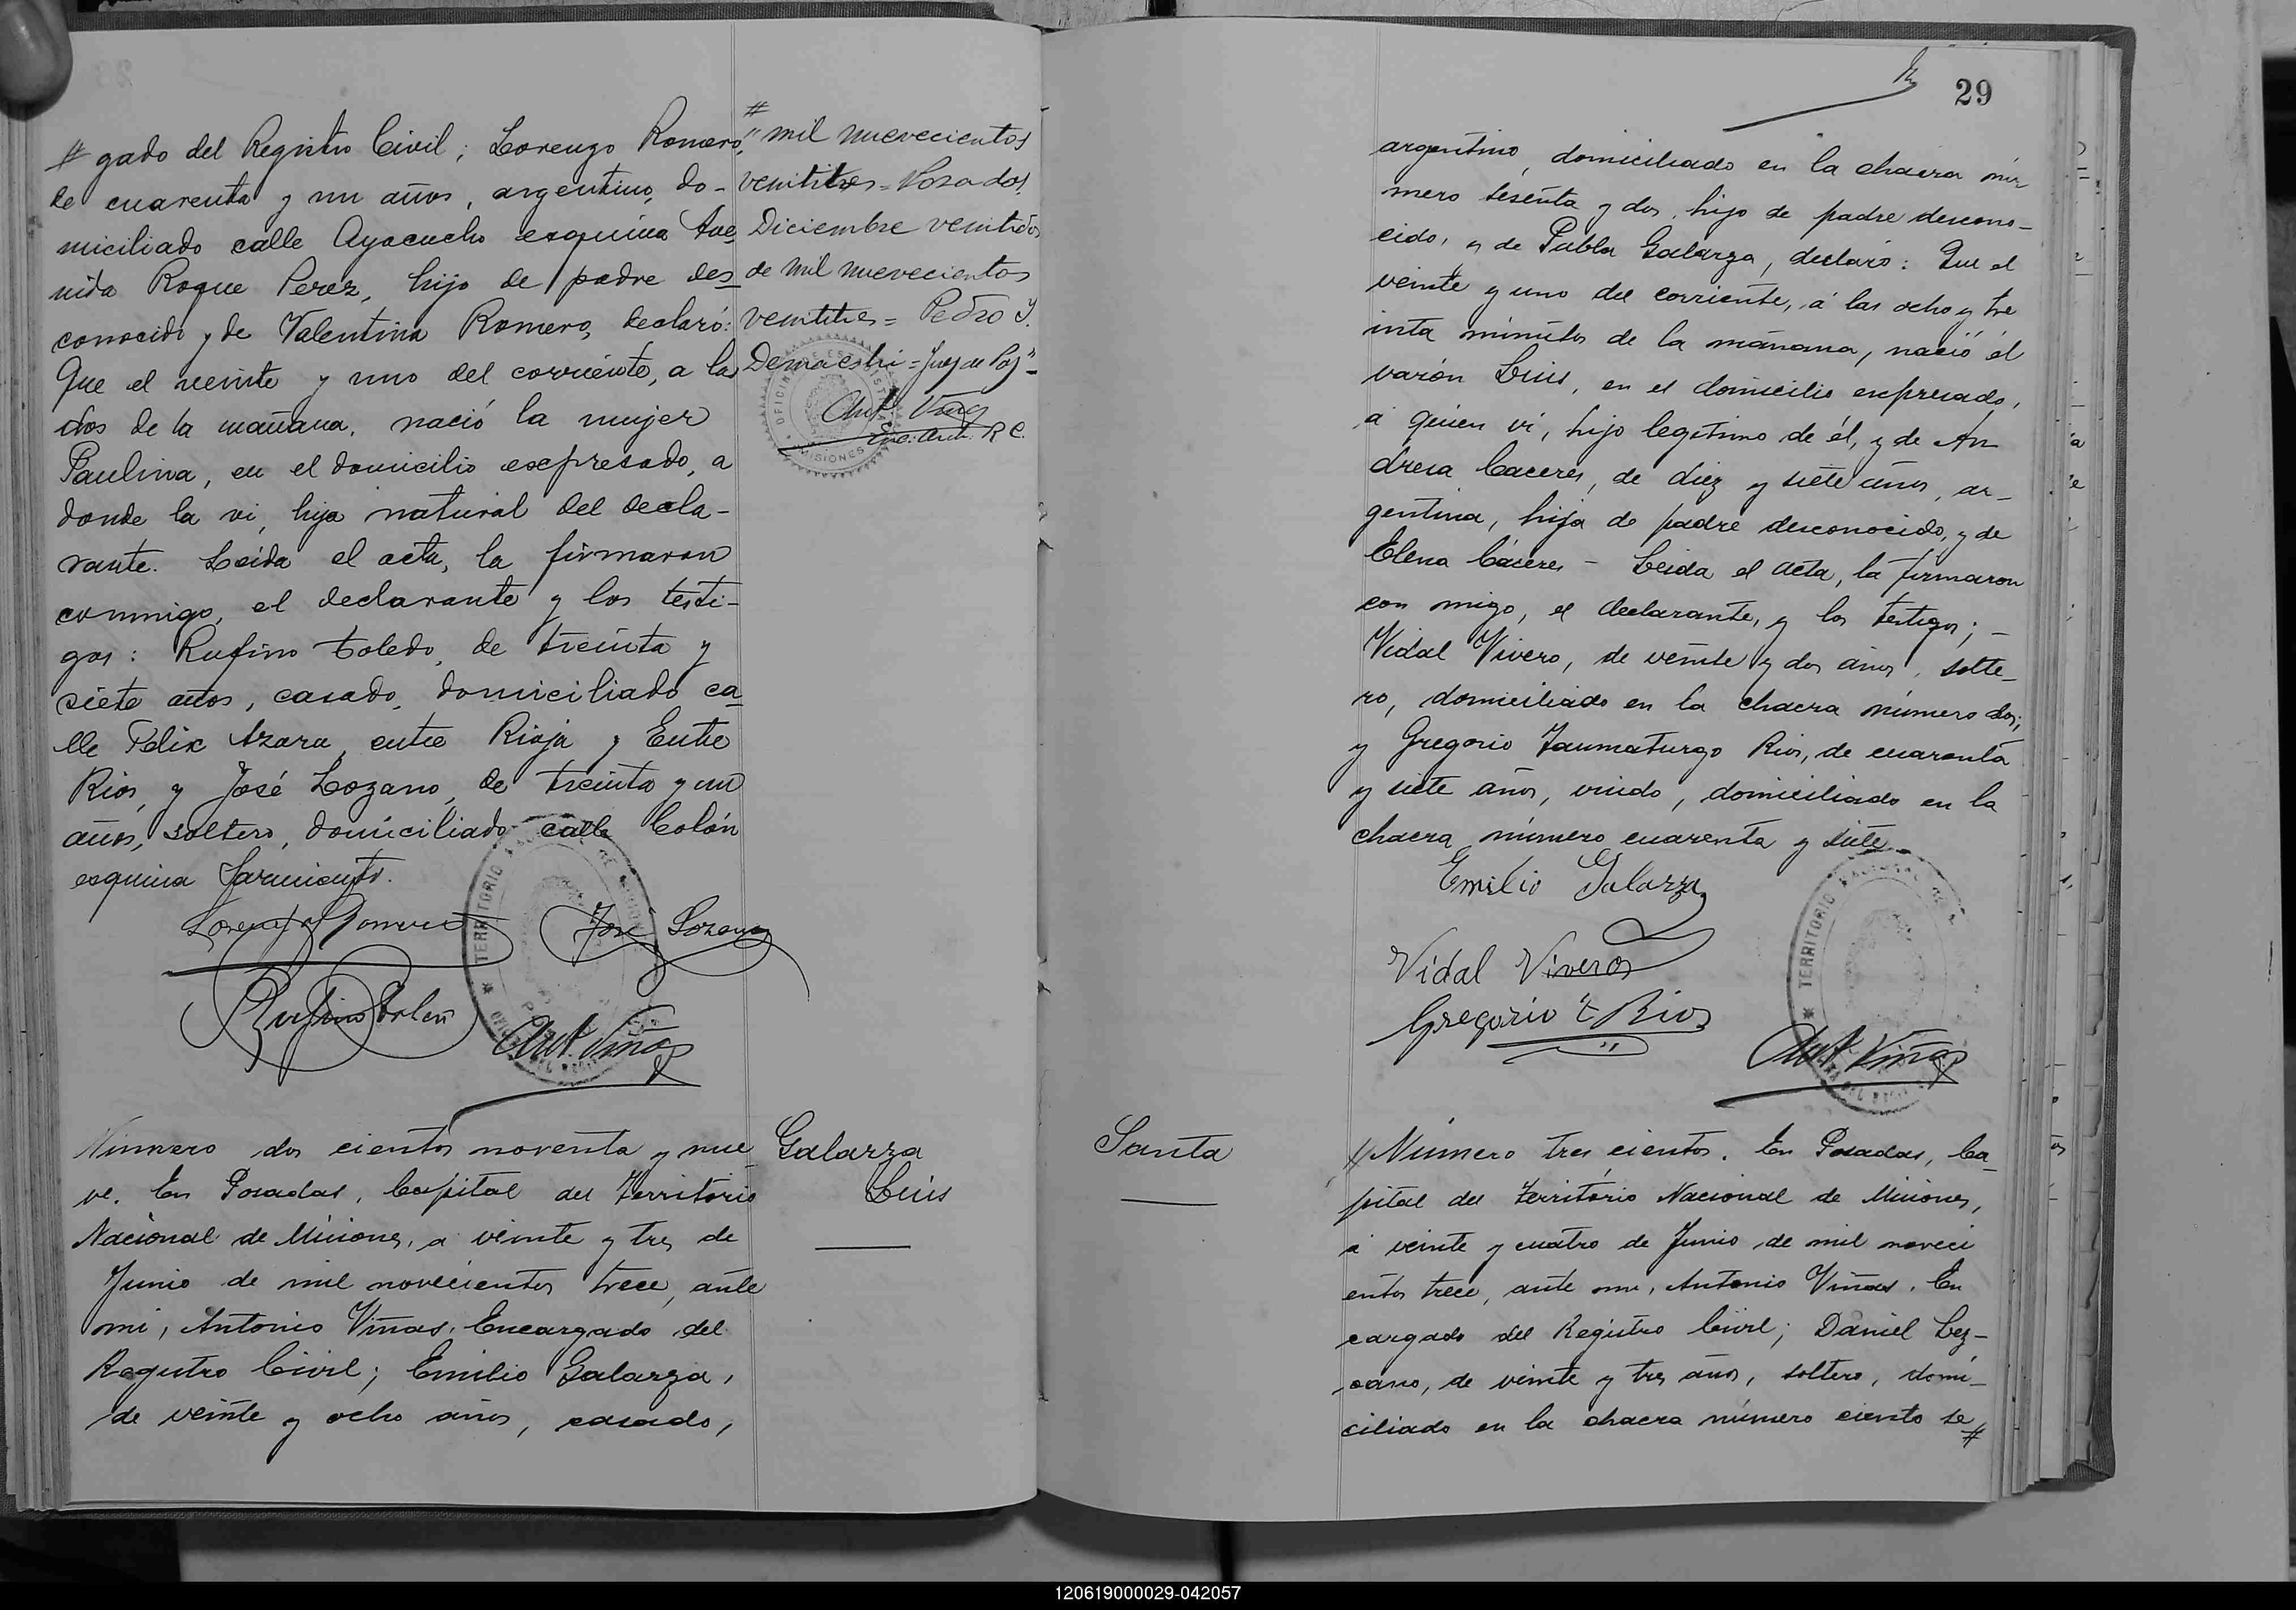 # gado del Registro Civil; Lorenzo Romero,
de cuarenta y un años, argentino, do-
miciliado calle Ayacucho esquina Ave
nida Roque Perez, hijo de padre des
conocido y de Valentina Romero, declaró:
Que el veinte y uno del corriente, a las
dos de la mañana, nació la mujer
Paulina, en el domicilio escpresado, a
donde la vi, hija natural del decla-
rante. Leída el acta, la firmaron
conmigo, el declarante y los testi-
gos: Rufino Toledo, de treinta y
siete años, casado, domiciliado ca
lle Felix Azara, entre Rioja y Entre
Rios, y José Lozano, de treinta y un
años, soltero, domiciliado calle Colón
esquina Sarmiento.
Lorenzo Romero José Lozano
Rufino Toledo
Ant. Viñas
#
" mil nuevecientos
ventitres = Posadas
Diciembre ventidos
de mil nuevecientos
ventitres = Pedro Y.
Demaestri = Juez de Paz" -
Ant. Viñas
Enc. R C.
Número dos cientos noventa y nue
ve. En Posadas, Capital del Territorio
Nacional de Misiones, a veinte y tres de
Junio de mil novecientos trece, ante
mi, Antonio Viñas, Encargado del
Registro Civil; Emilio Galarza,
de veinte y ocho años, casado,
Galarza
Luis
29
argentino, domiciliado en la chacra nú
mero sesenta y dos, hijo de padre descono-
cido, y de Pabla Galarza, declaró: Que el
veinte y uno del corriente, á las ocho y tre
inta minutos de la mañana, nació el
varón Luis, en el domicilio expresado,
á quien vi, hijo legitimo de él, y de An
dresa Caceres, de diez y siete años, ar-
gentina, hija de padre desconocido, y de
Elena Cáceres - Leida el acta, la firmaron
con migo, el declarante, y los testigos; -
Vidal Vivero, de veinte y dos años, solte-
ro, domiciliado en la chacra número dos;
y Gregorio Taumaturgo Rios, de cuarenta
y siete años, viudo, domiciliado en la
chacra número cuarenta y siete.
Emilio Galarza
Vidal Viveros
Gregorio T Rios
Ant. Viñas
TERRITORIO NACIONAL DE
Santa
// Número tres cientos. En Posadas, Ca-
pital del Territorio Nacional de Misiones,
á veinte y cuatro de Junio de mil noveci
entos trece, ante mi, Antonio Viñas, En
cargado del Registro Civil; Daniel Lez-
cano, de veinte y tres años, soltero, domi-
ciliado en la chacra número ciento se
#
120619000029-042057